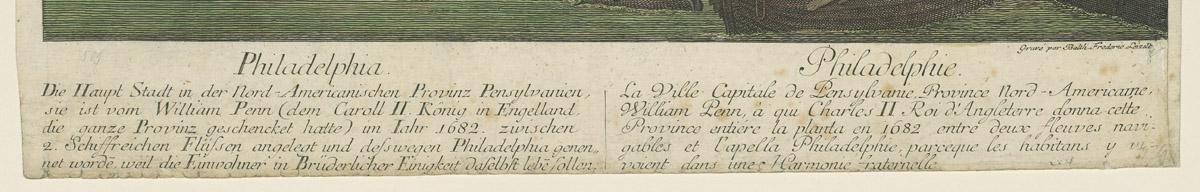 Gravé par Balth. Frederic Leizelt
Philadelphia.
Die Haupt Stadt in der Nord-Americanischen Provinz Pensylvanien,
sie ist vom William Penn (dem Caroll II. König in Engelland
die ganze Provinz geschencket hatte) im Jahr 1682. zwischen
2. Schiffreichen Flüssen angelegt und desswegen Philadelphia genen,
net wordē, weil die Einwohner in Brüderlicher Einigkeit daselbst lebē sollen,
Philadelphie.
La Ville Capitale de Pensylvanie, Province Nord-Americaine,
William Penn, à qui Charles II Roi d'Angleterre donna cette
Province entiere la planta en 1682 entre deux fleuves navi-
gables et l'apella Philadelphie, parceque les habitans y vi-
voient dans une Harmonie fraternelle